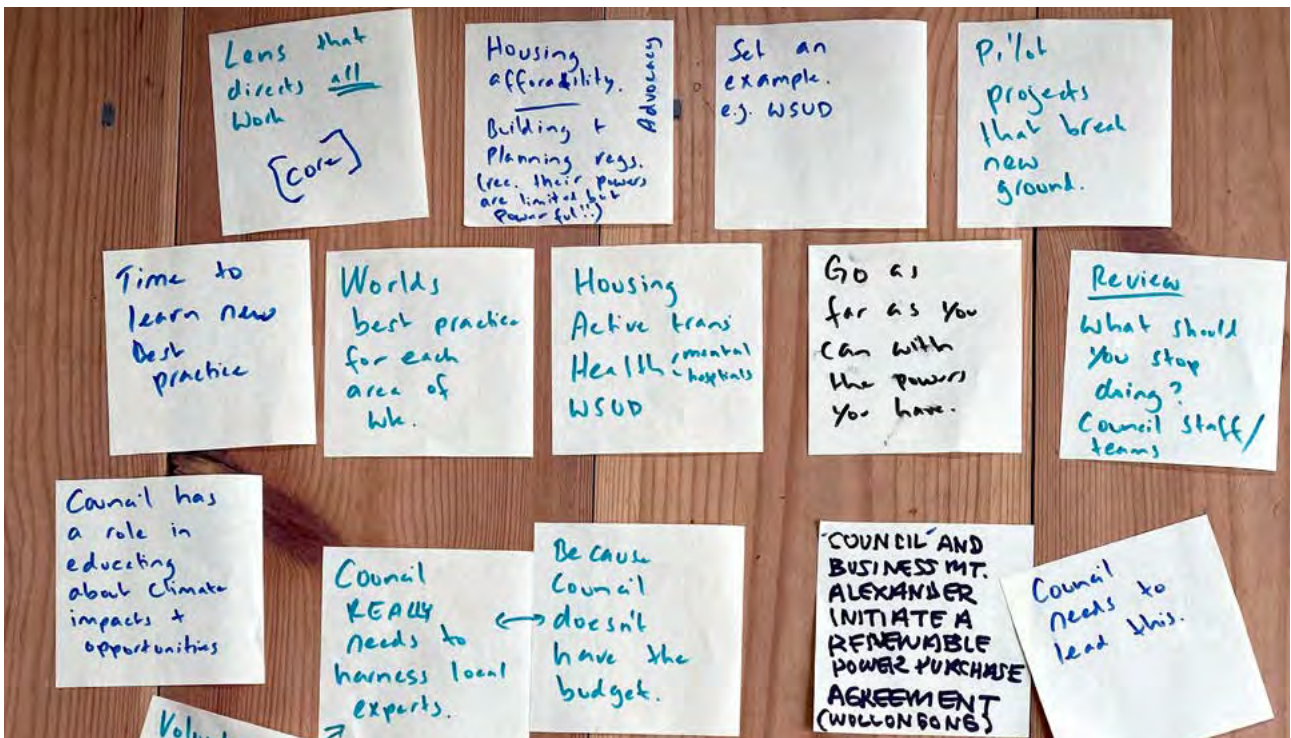 Lens that
directs all
work
[core]
Housing
afforadility.
Advocacy
Building +
Planning regs.
(rec. their powers
are limited but
powerful!!)
Set an
example.
e.g. WSUD
Pilot
projects
that break
new
ground.
Time to
learn new
Best
practice
Worlds
best practice
for each
area of
wk.
Housing
Active trans
Health < mental
hospitals
WSUD
Go as
far as you
can with
the powers
you have.
Review
What should
you stop
doing?
Council staff/
teams
Council has
a role in
educating
about Climate
impacts +
opportunities
Council
REALLY
needs to
harness local
experts.
Because
Council
doesn't
have the
budget.
COUNCIL AND
BUSINESS MT.
ALEXANDER
INITIATE A
RENEWABLE
POWER PURCHASE
AGREEMENT
(WOLLONGONG)
Council
needs to
lead this.